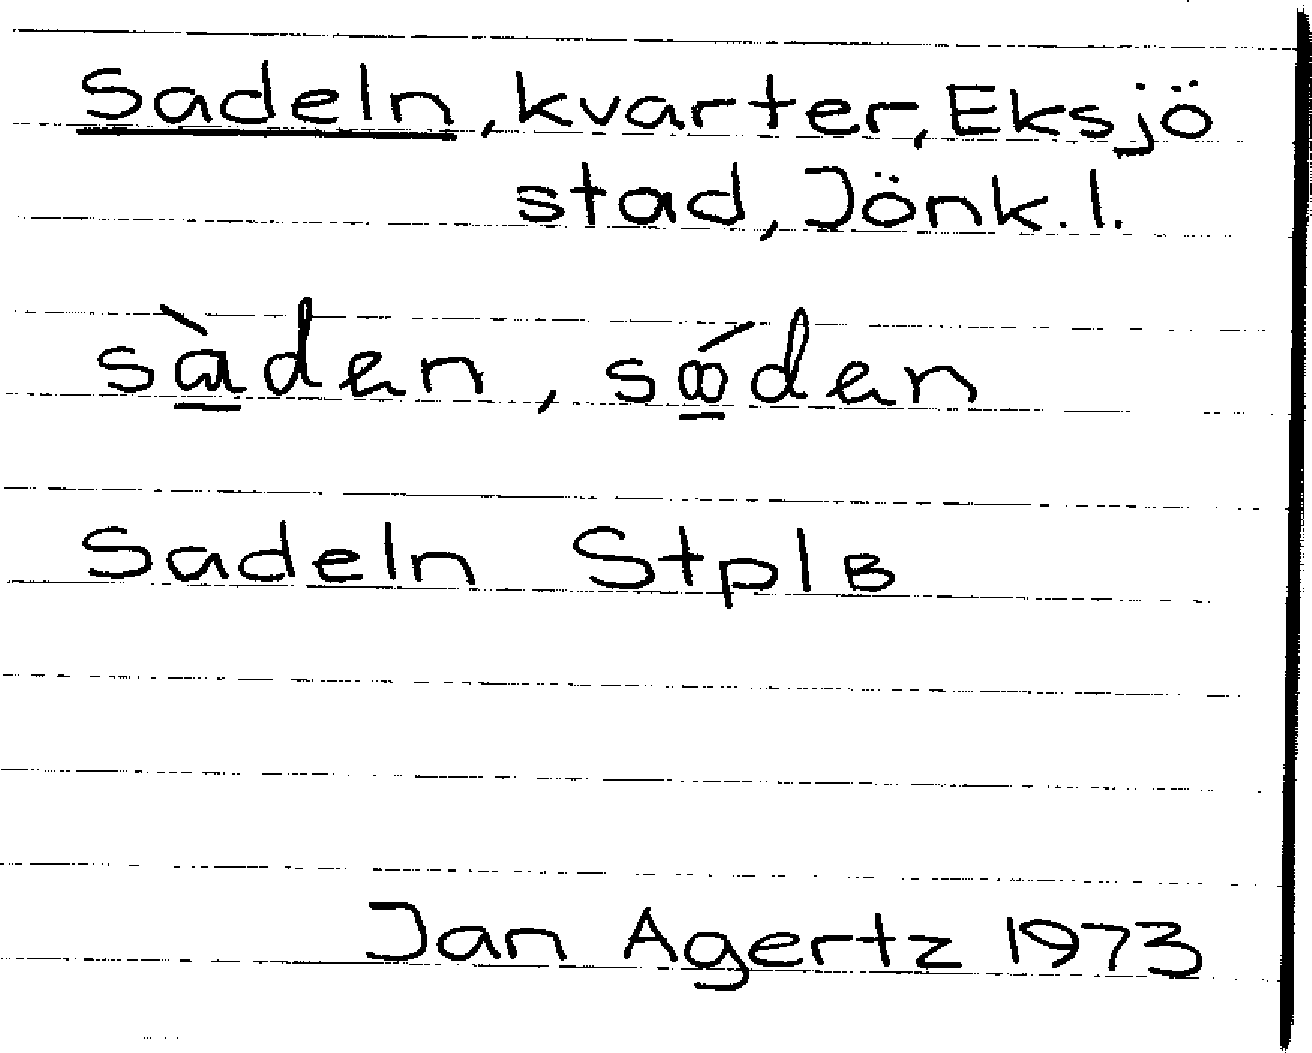 Sadeln, kvarter, Eksjö
stad, Jönk.l.
sàden, sóden
Sadeln StplB
Jan Agertz 1973